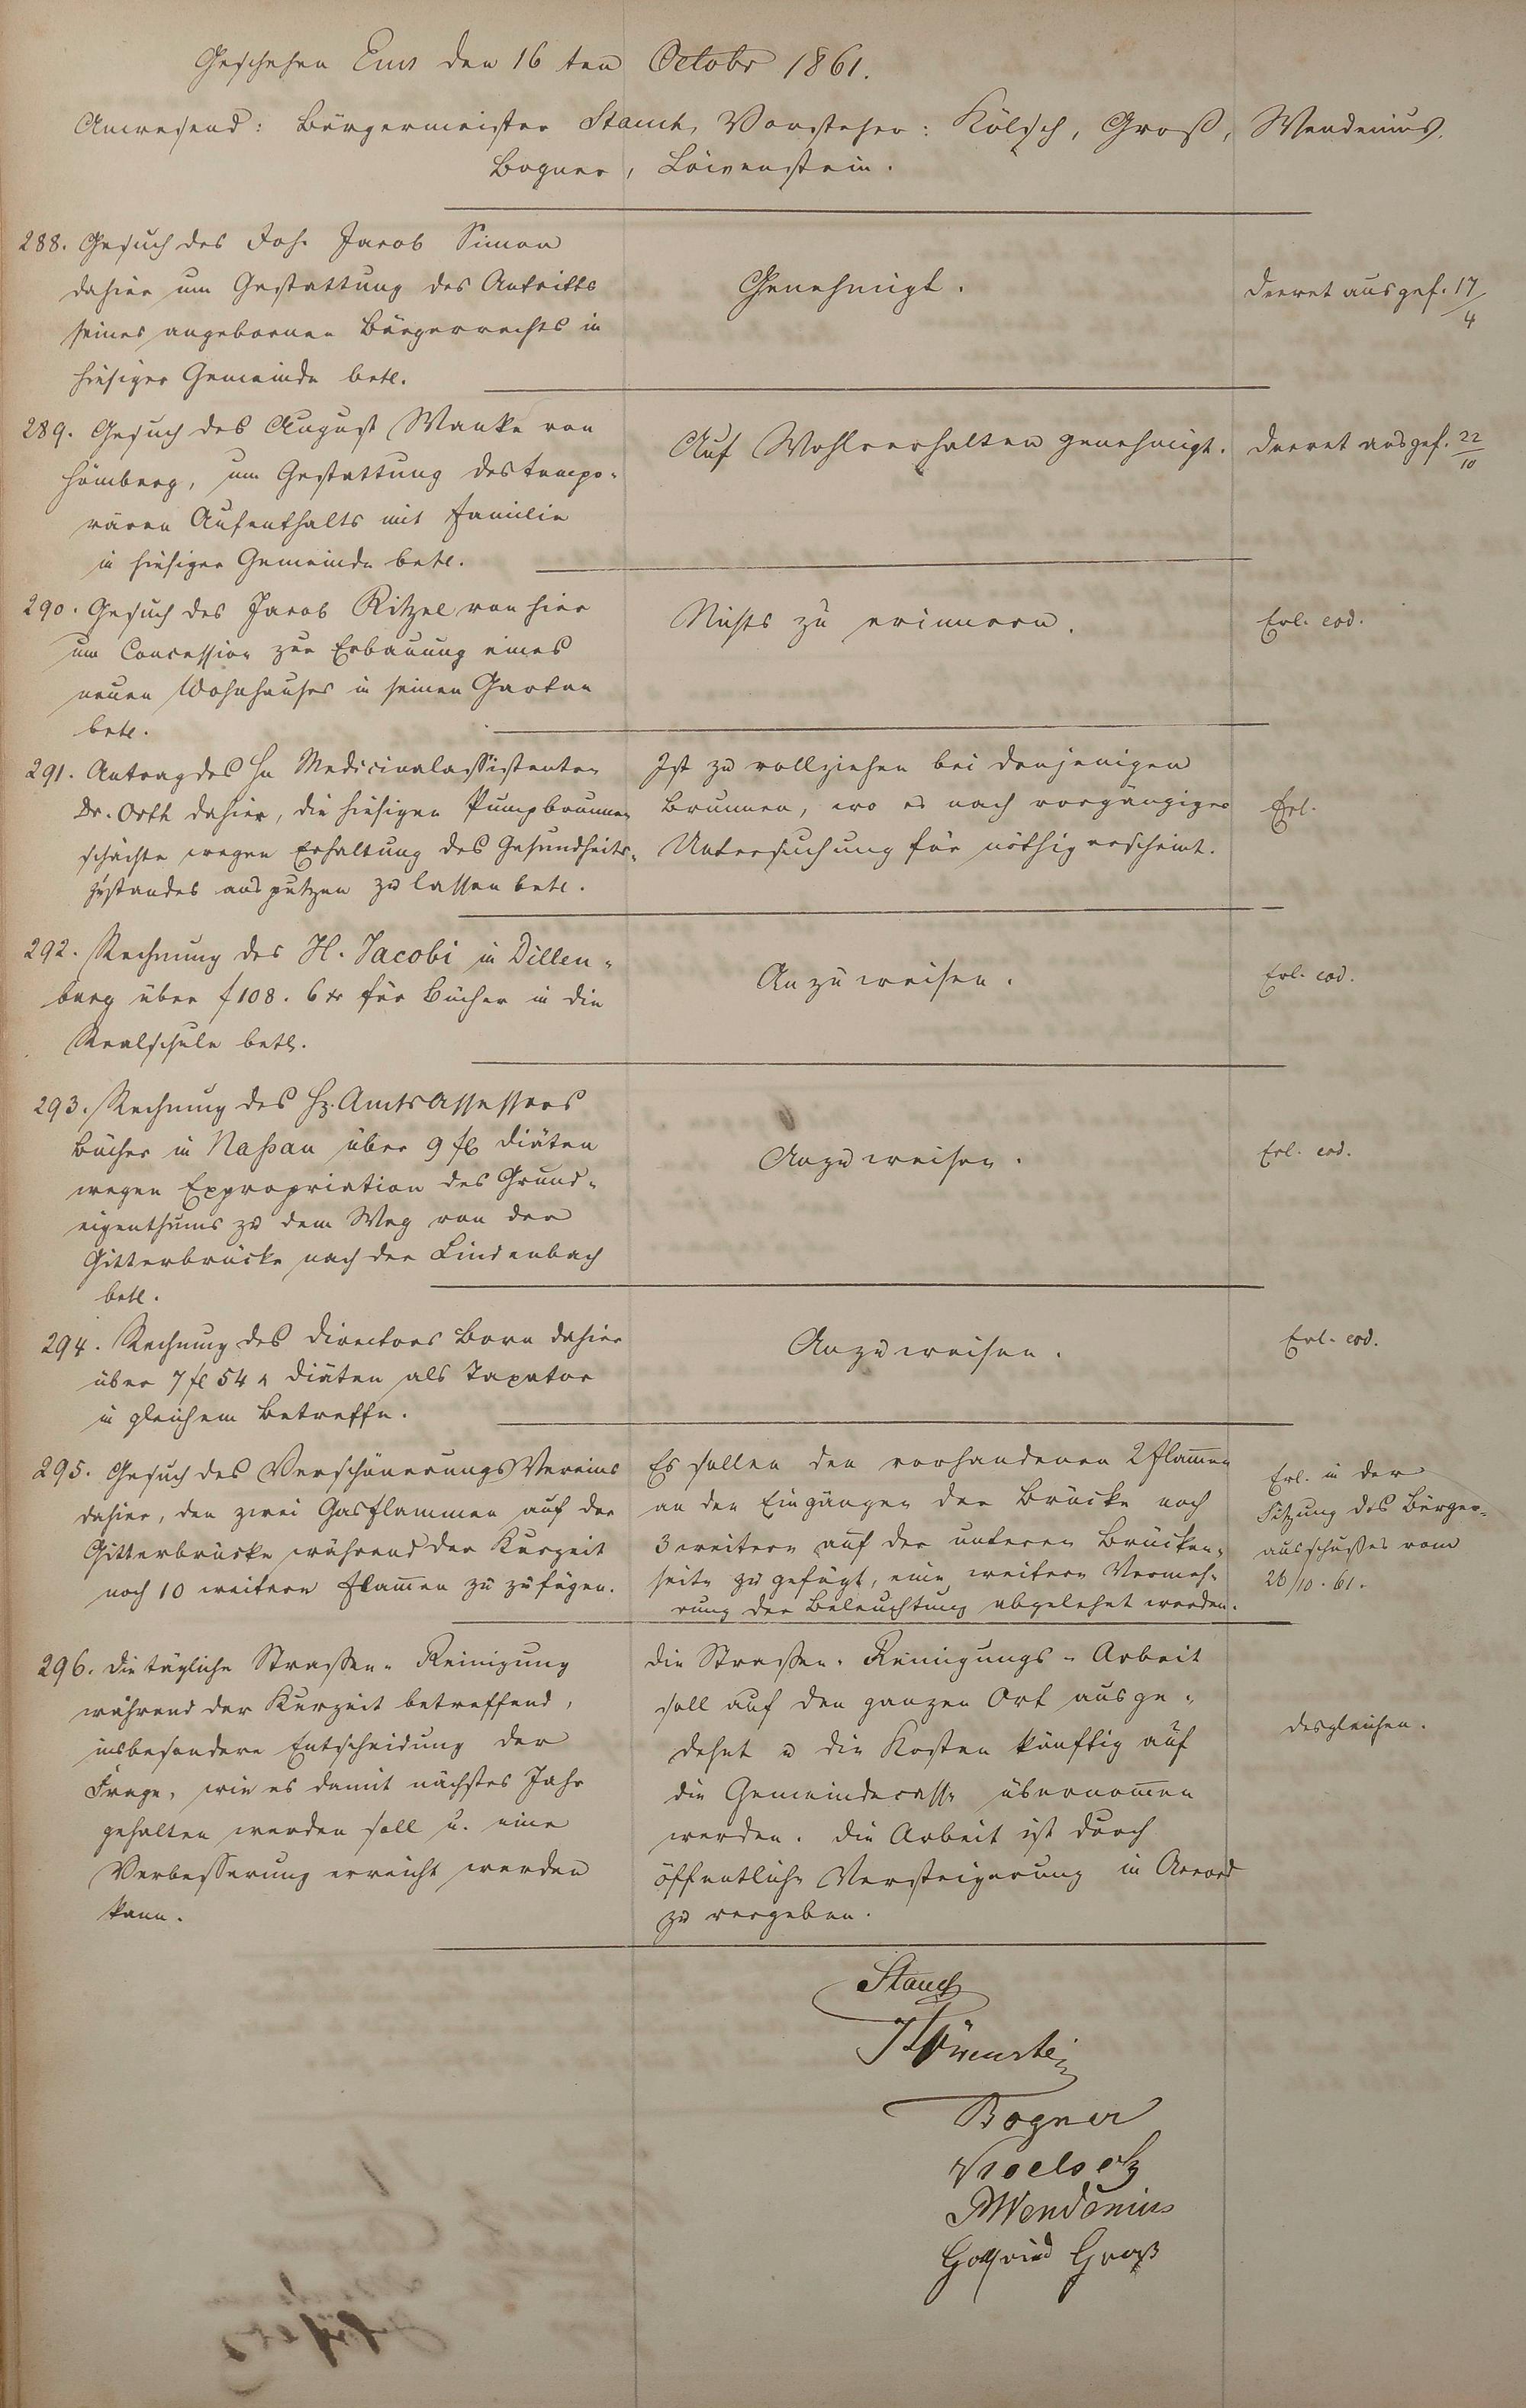 Geschehen Ems den 16ten Octobr 1861.
Anwesend: Bürgermeister Stauch, Vorsteher: Kölsch, Groß, Wendenius,
Bogner, Löwenstein.
288. Gesuch des Joh. Jacob Simon
dahier um Gestattung des Antritts
seines angebornen Bürgerrechts in
hiesiger Gemeinde betr.
Genehmigt.
Decret ausgef. 17/4
289. Gesuch des August Wanke von
Hömberg, um Gestattung des tempo-
rären Aufenthalts mit Familie
in hiesiger Gemeinde betr.
Auf Wohlverhalten genehmigt.
Decret ausgef. 22/10
290. Gesuch des Jacob Ritzel von hier
um Concession zur Erbauung eines
neuen Wohnhauses in seinen Garten
betr.
Nichts zu erinnern.
Erl. eod.
291. Antrag des Hn Medicinalassistenten
Dr. Orth dahier, die hiesigen Pumpbrunnen
schächte wegen Erhaltung des Gesundheits-
zustandes ausputzen zu lassen betr.
Ist zu vollziehen bei denjenigen
Brunnen, wo es nach vorgängiger
Untersuchung für nöthig erscheint.
Erl.
292. Rechnung des H. Jacobi in Dillen-
burg über f 108. 6 xr für Bücher in die
Realschule betr.
Anzuweisen.
Erl. eod.
293. Rechnung des H. Amtsassessors
Bücher in Naßau über 9 fl Diäten
wegen Expropriation des Grund-
eigenthums zu dem Weg von der
Gitterbrücke nach der Lindenbach
betr.
Anzuweisen.
Erl. eod.
294. Rechnung des Directors Born dahier
über 7 fl 54 x Diäten als Taxator
in gleichem Betreffe.
Anzuweisen.
Erl. eod.
295. Gesuch des Verschönerungs Vereins
dahier, den zwei Gasflammen auf der
Gitterbrücke während der Kurzeit
noch 10 weitere Flam̅en zu zufügen.
Es sollen den vorhandenen 2 Flam̅en
an den Eingängen der Brücke noch
3 weitere auf der unteren Brücken-
seite zugefügt, eine weitere Vermeh-
rung der Beleuchtung abgelehnt werden.
Erl. in der
Sitzung des Bürger-
ausschußes vom
26/10. 61.
296. Die tägliche Straßen-Reinigung
während der Kurzeit betreffend,
insbesondere Entscheidung der
Frage, wie es damit nächstes Jahr
gehalten werden soll u. eine
Verbesserung erreicht werden
kann.
Die Straßen-Reinigungs-Arbeit
soll auf den ganzen Ort ausge-
dehnt u die Kosten künftig auf
die Gemeindecasse übernom̅en
werden. Die Arbeit ist durch
öffentliche Versteigerung in Accord
zu vergeben.
desgleichen.
Stauch
Löwenstein
Bogner
Koelsch
Wendenius
Gottfried Groß